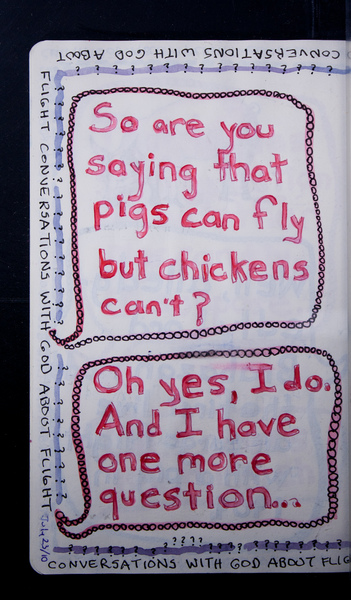 CONVERSATIONS WITH GOD ABOUT
FLIGHT CONVERSATIONS WITH GOD ABOUT FLIGHT
July 23/10
So are you
saying that
pigs can fly
but chickens
can't?
Oh yes, I do.
And I have
one more
question...
CONVERSATIONS WITH GOD ABOUT FLIG